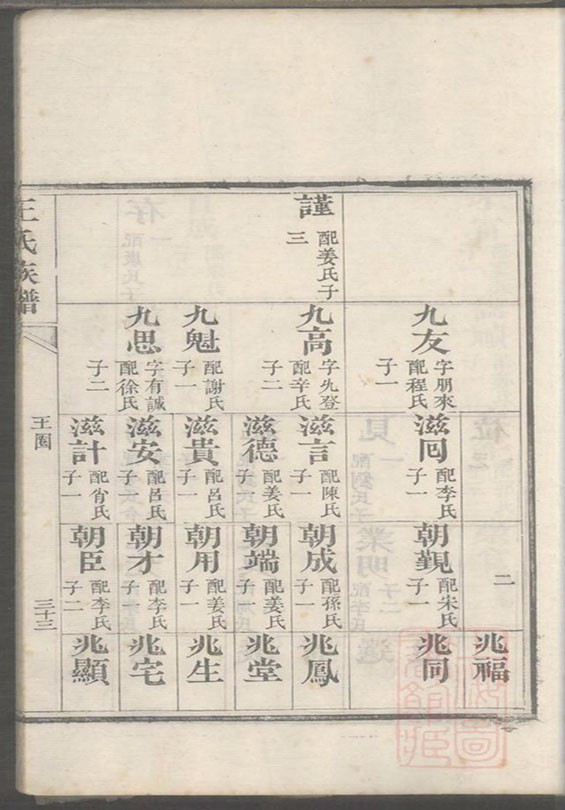 兆福
二
九友 字朋來 配程氏 子一
滋囘 配李氏 子一
朝觐 配宋氏 子一
兆同
謹 配姜氏子三
九高 字先登 配辛氏 子二
滋言 配陳氏 子一
朝成 配孫氏 子一
兆鳳
滋德 配姜氏 子一
朝端 配姜氏 子一
兆堂
九魁 配謝氏 子一
滋貴 配呂氏 子一
朝用 配姜氏 子一
兆生
九思 字有誠 配徐氏 子二
滋安 配呂氏 子一
朝才 配李氏 子一
兆宅
滋計 配肖氏 子一
朝臣 配李氏 子二
兆顯
王氏族譜
王圈
三十三